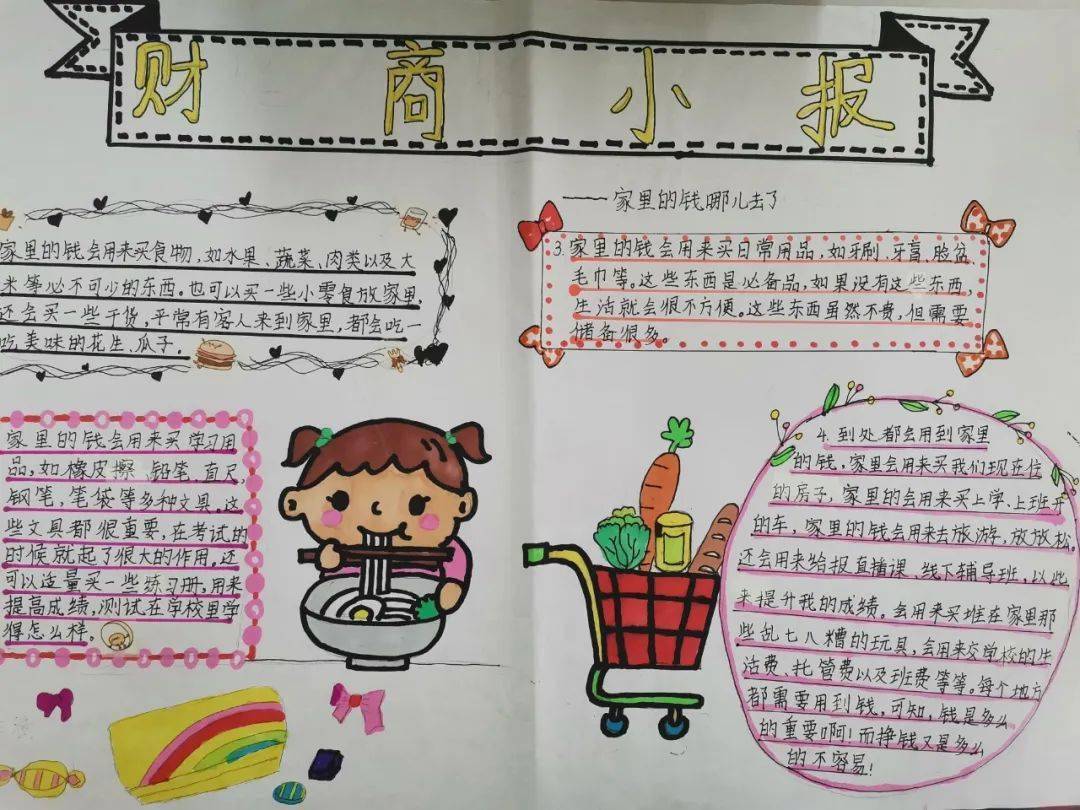 财商小报
——家里的钱哪儿去了
家里的钱会用来买食物,如水果、蔬菜、肉类以及大
米等必不可少的东西。也可以买一些小零食放家里,
还会买一些干货,平常有客人来到家里,都会吃一
吃美味的花生、瓜子.
家里的钱会用来买学习用
品,如橡皮擦、铅笔、直尺、
钢笔,笔袋等多种文具。这
些文具都很重要,在考试的
时候就起了很大的作用。还
可以适量买一些练习册,用来
提高成绩,测试在学校里学
得怎么样。
3.家里的钱会用来买日常用品,如牙刷.牙膏.脸盆、
毛巾等。这些东西是必备品,如果没有这些东西,
生活就会很不方便。这些东西虽然不贵,但需要
储备很多。
4.到处都会用到家里
的钱,家里会用来买我们现在住
的房子,家里的会用来买上学、上班开
的车,家里的钱会用来去旅游,放放松。
还会用来给报直播课、线下辅导班,以此
来提升我的成绩。会用来买堆在家里那
些乱七八糟的玩具,会用来交学校的生
活费、托管费以及班费等等。每个地方
都需要用到钱,可知,钱是多么
的重要啊!而挣钱又是多么
的不容易!